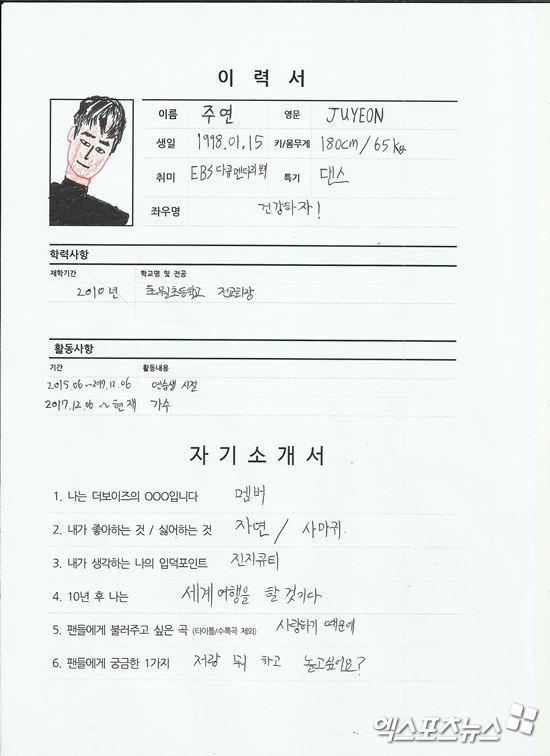 이 력 서
이름 주연 영문 JUYEON
생일 1998.01.15 키/몸무게 180cm/65kg
취미 EBS 다큐멘터리 보기 특기 댄스
좌우명 건강하자!
학력사항
재학기간 학교명 및 전공
2010년 초등학교 전교회장
활동사항
기간 활동내용
2015.06~2017.12.06 연습생 시절
2017.12.06 ~ 현재 가수
자 기 소 개 서
1. 나는 더보이즈의 OOO입니다 멤버
2. 내가 좋아하는 것 / 싫어하는 것 자연 / 사마귀
3. 내가 생각하는 나의 입덕포인트 진지큐티
4. 10년 후 나는 세계여행을 할 것이다
5. 팬들에게 불러주고 싶은 곡 (타이틀/수록곡 제외) 사랑하기 때문에
6. 팬들에게 궁금한 1가지 저랑 뭐 하고 놀고싶어요?
엑스포츠뉴스